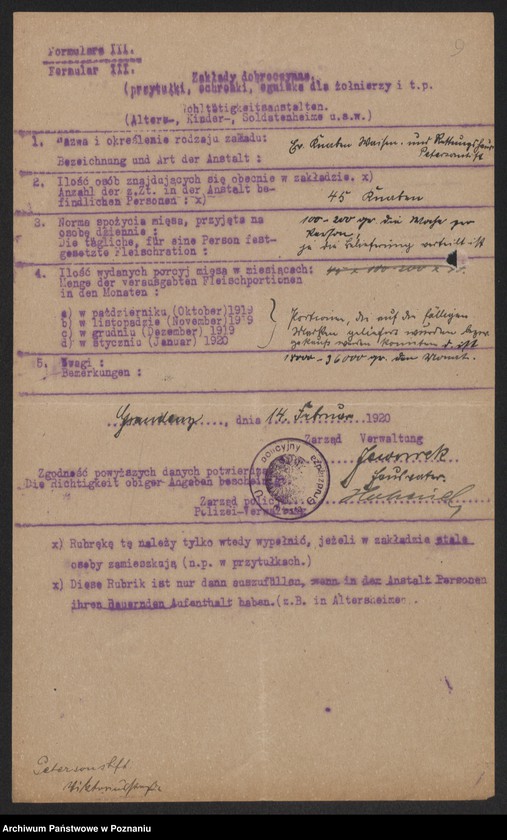 9
Formularz III.
Formular III.
Zakłady dobroczynne.
(przytułki, schronki, ogniska dla żołnierzy i t.p.
Wohltätigkeitsanstalten.
(Alters-, Kinder-, Soldatenheime u.a.w.)
1. Nazwa i określenie rodzaju zakładu:
Bezeichnung und Art der Anstalt :
Ev. Knaben Waisen- und Rettungshaus
Petersonstift
2. Ilość osób znajdujących się obecnie w zakładzie. x)
Anzahl der z.Zt. in der Anstalt be-
findlichen Personen : x)
45 Knaben
3. Norma spożycia mięsa, przyjęta na
osobę dziennie :
Die tägliche, für eine Person fest-
gesetzte Fleischration :
100-200 gr. die Woche per
Person,
je die Belieferung verteilt ist
4. Ilość wydanych porcyj mięsa w miesiącach:
Menge der verausgabten Fleischportionen
in den Monaten :
a) w październiku (Oktober) 1919
b) w listopadzie (November) 1919
c) w grudniu (Dezember) 1919
d) w styczniu (Januar) 1920
Portionen, die auf die fälligen
Marken geliefert wurden bezw.
gekauft werden konnten
18000-36000 gr. den Monat.
5. Uwagi :
Bemerkungen :
Graudenz, dnia 14. Februar 1920
Zarząd Verwaltung
Jaworrek
Hausvater.
Zgodność powyższych danych potwierdza
Die Richtigkeit obiger Angaben bescheinigt
Zarząd policyjny
Polizei-Verwaltung
x) Rubrękę tę należy tylko wtedy wypełnić, jeżeli w zakładzie stale
osoby zamieszkują (n.p. w przytułkach.)
x) Diese Rubrik ist nur dann auszufüllen, wenn in der Anstalt Personen
ihren dauernden Aufenthalt haben.(z.B. in Altersheime
Petersonstift
Viktoriastraße
Archiwum Państwowe w Poznaniu